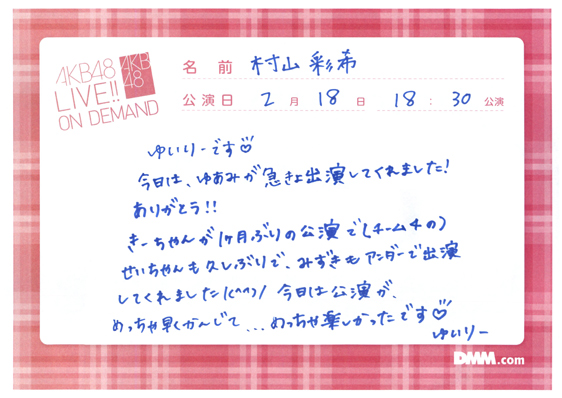 AKB48
LIVE!!
ON DEMAND
AKB
48
名前 村山彩希
公演日 2月18日 18:30公演
ゆいりーです♡
今日は、ゆあみが急きょ出演してくれました!
ありがとう!!
きーちゃんが1ヶ月ぶりの公演で(チーム4の)
せいちゃんも久しぶりで、みずきもアンダーで出演
してくれました\(^^)/ 今日は公演が、
めっちゃ早くかんじて...めっちゃ楽しかったです♡
ゆいりー
DMM.com